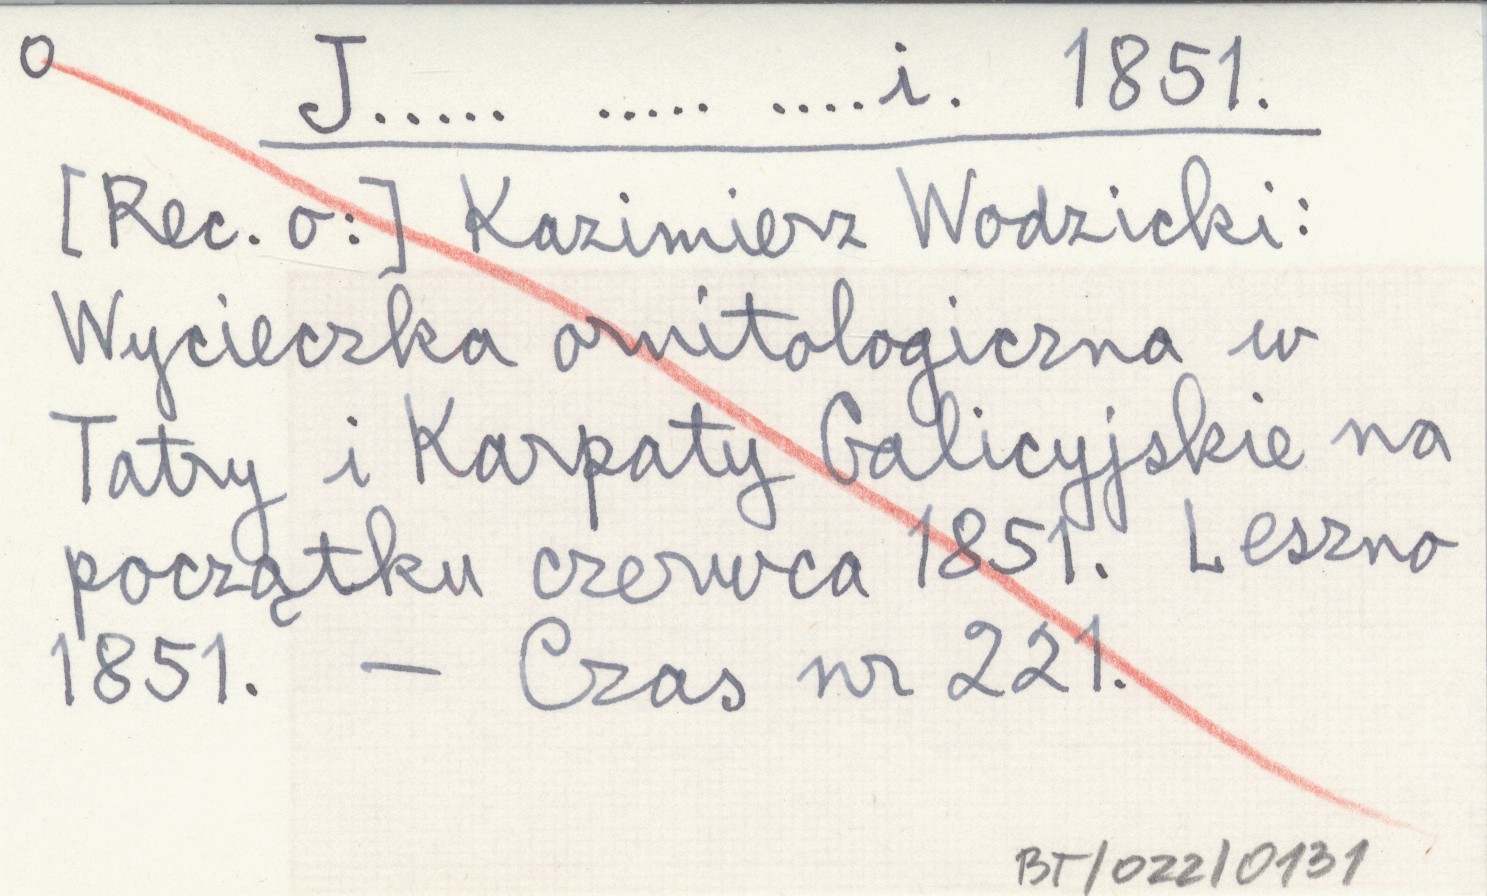 O J..... ..... ....i. 1851.
[Rec. o:] Kazimierz Wodzicki:
Wycieczka ornitologiczna w
Tatry i Karpaty Galicyjskie na
początku czerwca 1851. Leszno
1851. — Czas nr 221.
BT/022/0131